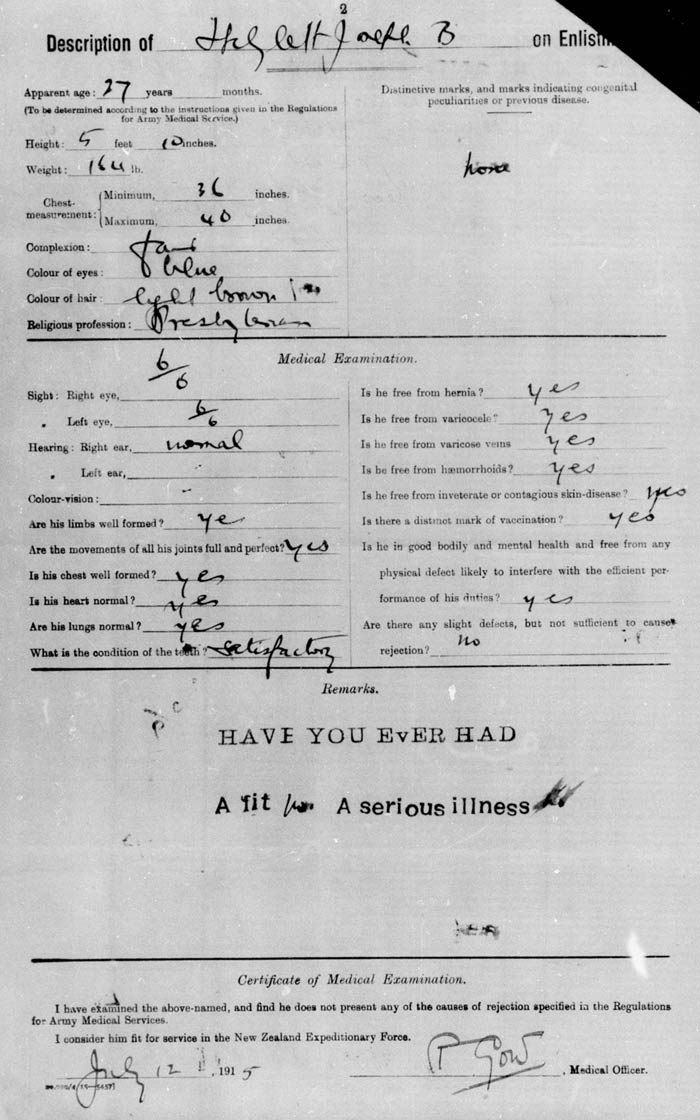 2
Description of Joseph B on Enlistm
Apparent age: 27 years months.
(To be determined according to the instructions given in the Regulations
for Army Medical Service.)
Height: 5 feet 10 inches.
Weight: 164 lb.
Chest-measurement: Minimum, 36 inches.
Maximum, 40 inches.
Complexion: fair
Colour of eyes: blue
Colour of hair: light brown
Religious profession: Presbyterian
Distinctive marks, and marks indicating congenital
peculiarities or previous disease.
none
Medical Examination.
Sight: Right eye, 6/6
" Left eye, 6/6
Hearing: Right ear, normal
" Left ear, "
Colour-vision: "
Are his limbs well formed? yes
Are the movements of all his joints full and perfect? yes
Is his chest well formed? yes
Is his heart normal? yes
Are his lungs normal? yes
What is the condition of the teeth? satisfactory
Is he free from hernia? yes
Is he free from varicocele? yes
Is he free from varicose veins yes
Is he free from hæmorrhoids? yes
Is he free from inveterate or contagious skin-disease? yes
Is there a distinct mark of vaccination? yes
Is he in good bodily and mental health and free from any
physical defect likely to interfere with the efficient per-
formance of his duties? yes
Are there any slight defects, but not sufficient to cause
rejection? no
Remarks.
HAVE YOU EvER HAD
A fit no A serious illness
Certificate of Medical Examination.
I have examd the above-named, and find he does not present any of the causes of rejection specified in the Regulations
for Army Medical Services.
I consider him fit for service in the New Zealand Expeditionary Force.
July 12, 1915 P Gow, Medical Officer.